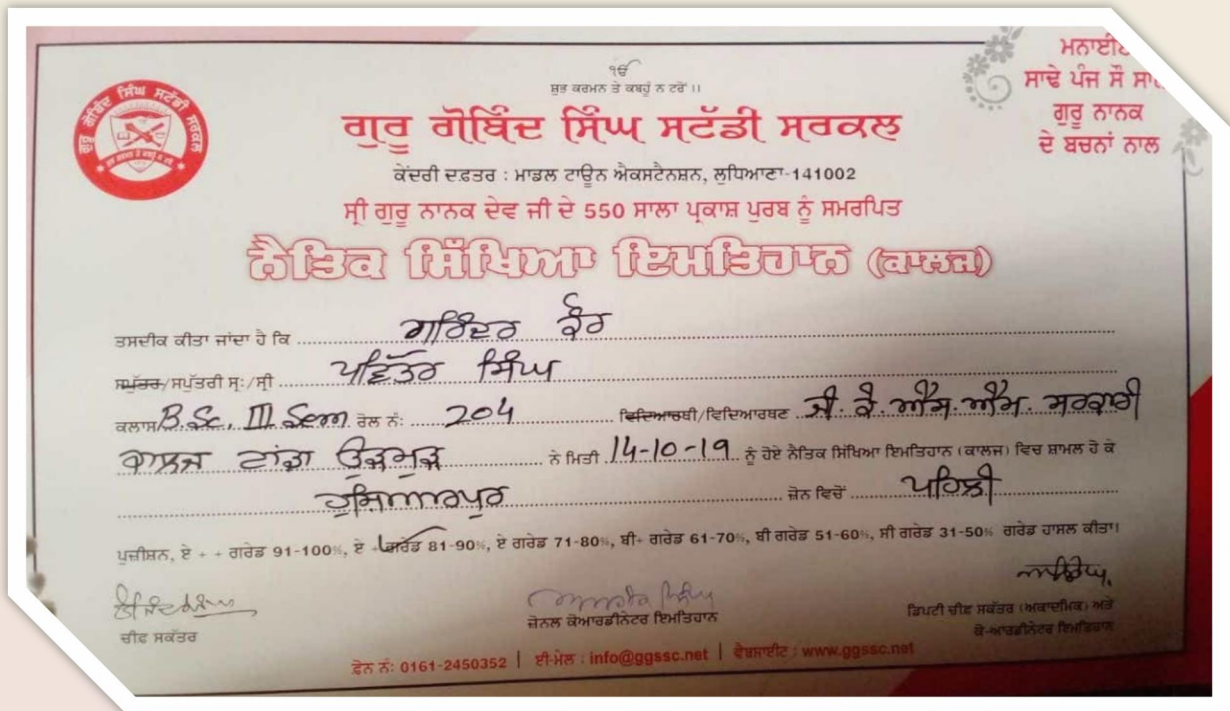 ੴ
ਸ਼ੁਭ ਕਰਮਨ ਤੇ ਕਬਹੂੰ ਨ ਟਰੋਂ ।।
ਗੁਰੂ ਗੋਬਿੰਦ ਸਿੰਘ ਸਟੱਡੀ ਸਰਕਲ
ਗੁਰੂ ਗੋਬਿੰਦ ਸਿੰਘ ਸਟੱਡੀ ਸਰਕਲ
ਮਨਾਈਏ
ਸਾਢੇ ਪੰਜ ਸੌ ਸਾਲ
ਗੁਰੂ ਨਾਨਕ
ਦੇ ਬਚਨਾਂ ਨਾਲ
ਕੇਂਦਰੀ ਦਫ਼ਤਰ : ਮਾਡਲ ਟਾਊਨ ਐਕਸਟੈਨਸ਼ਨ, ਲੁਧਿਆਣਾ-141002
ਸ੍ਰੀ ਗੁਰੂ ਨਾਨਕ ਦੇਵ ਜੀ ਦੇ 550 ਸਾਲਾ ਪ੍ਰਕਾਸ਼ ਪੁਰਬ ਨੂੰ ਸਮਰਪਿਤ
ਨੈਤਿਕ ਸਿੱਖਿਆ ਇਮਤਿਹਾਨ (ਕਾਲਜ)
ਤਸਦੀਕ ਕੀਤਾ ਜਾਂਦਾ ਹੈ ਕਿ ਗਰਿੰਦਰ ਕੌਰ
ਸਪੁੱਤਰ/ਸਪੁੱਤਰੀ ਸ੍ਰ:/ਸ੍ਰੀ ਪਵਿੱਤਰ ਸਿੰਘ
ਕਲਾਸ B.Sc. III Sem ਰੋਲ ਨੰ: 204 ਵਿਦਿਆਰਥੀ/ਵਿਦਿਆਰਥਣ ਜੀ. ਕੇ. ਐਸ. ਐਮ. ਸਰਕਾਰੀ
ਕਾਲਜ ਟਾਂਡਾ ਉੜਮੁੜ ਨੇ ਮਿਤੀ 14-10-19 ਨੂੰ ਹੋਏ ਨੈਤਿਕ ਸਿੱਖਿਆ ਇਮਤਿਹਾਨ (ਕਾਲਜ) ਵਿਚ ਸ਼ਾਮਲ ਹੋ ਕੇ
ਹੁਸ਼ਿਆਰਪੁਰ ਜ਼ੋਨ ਵਿਚੋਂ ਪਹਿਲੀ
ਪੁਜ਼ੀਸ਼ਨ, ਏ + + ਗਰੇਡ 91-100%, ਏ + ਗਰੇਡ 81-90%, ਏ ਗਰੇਡ 71-80%, ਬੀ+ ਗਰੇਡ 61-70%, ਬੀ ਗਰੇਡ 51-60%, ਸੀ ਗਰੇਡ 31-50% ਗਰੇਡ ਹਾਸਲ ਕੀਤਾ।
ਚੀਫ਼ ਸਕੱਤਰ
ਜ਼ੋਨਲ ਕੋਆਰਡੀਨੇਟਰ ਇਮਤਿਹਾਨ
ਡਿਪਟੀ ਚੀਫ਼ ਸਕੱਤਰ (ਅਕਾਦਮਿਕ) ਅਤੇ
ਕੋ-ਆਰਡੀਨੇਟਰ ਇਮਤਿਹਾਨ
ਫੋਨ ਨੰ: 0161-2450352 | ਈ-ਮੇਲ : info@ggssc.net | ਵੈਬਸਾਈਟ : www.ggssc.net